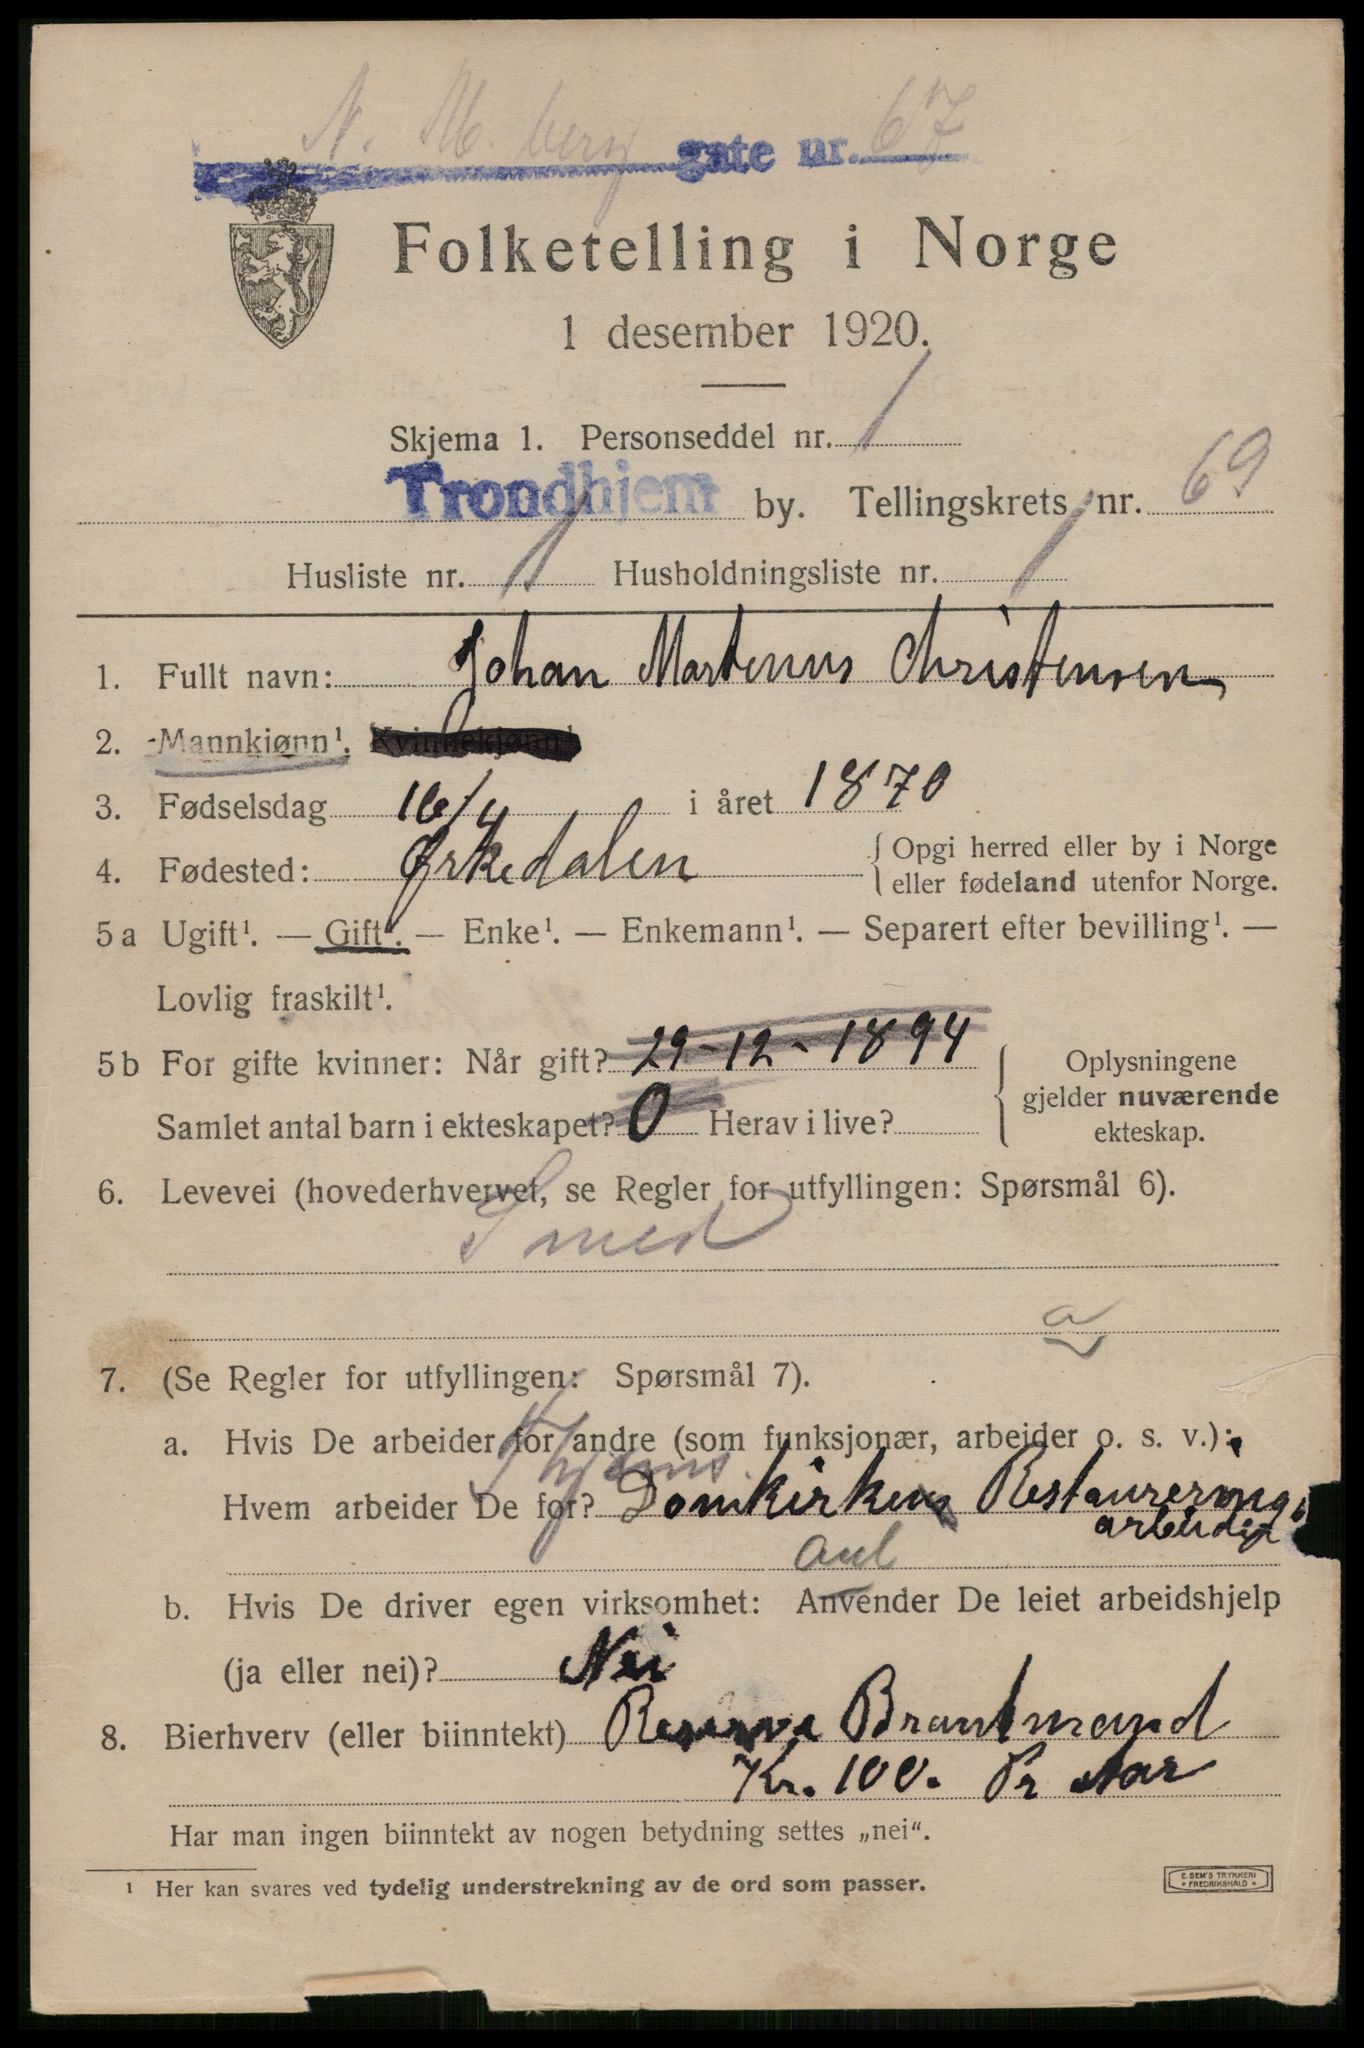 N. M. berg gate nr. 67
Folketelling i Norge
1 desember 1920.
Skjema 1. Personseddel nr. 1
Trondhjem by. Tellingskrets nr. 69
Husliste nr. 1 Husholdningsliste nr. 1
1. Fullt navn: Johan Martinus Christensen
2. Mannkjønn¹. Kvinnekjønn¹
3. Fødselsdag 16/4 i året 1870
4. Fødested: Ørkedalen { Opgi herred eller by i Norge
eller fødeland utenfor Norge.
5a Ugift¹. — Gift¹. — Enke¹. — Enkemann¹. — Separert efter bevilling¹. —
Lovlig fraskilt¹.
5b For gifte kvinner: Når gift? 29-12-1894
Samlet antal barn i ekteskapet? 0 Herav i live?
Oplysningene
gjelder nuværende
ekteskap.
6. Levevei (hovederhvervet, se Regler for utfyllingen: Spørsmål 6).
Smed
a
7. (Se Regler for utfyllingen: Spørsmål 7).
a. Hvis De arbeider for andre (som funksjonær, arbeider o. s. v.):
Hvem arbeider De for? Thjems Domkirkens Restaurerings
arbeider
b. Hvis De driver egen virksomhet: Anvender De leiet arbeidshjelp
(ja eller nei)? Nei
8. Bierhverv (eller biinntekt) Reserve Brantmand
Kr. 100. Pr Aar
Har man ingen biinntekt av nogen betydning settes „nei“.
¹ Her kan svares ved tydelig understrekning av de ord som passer.
E. SEM'S TRYKKERI
* FREDRIKSHALD *